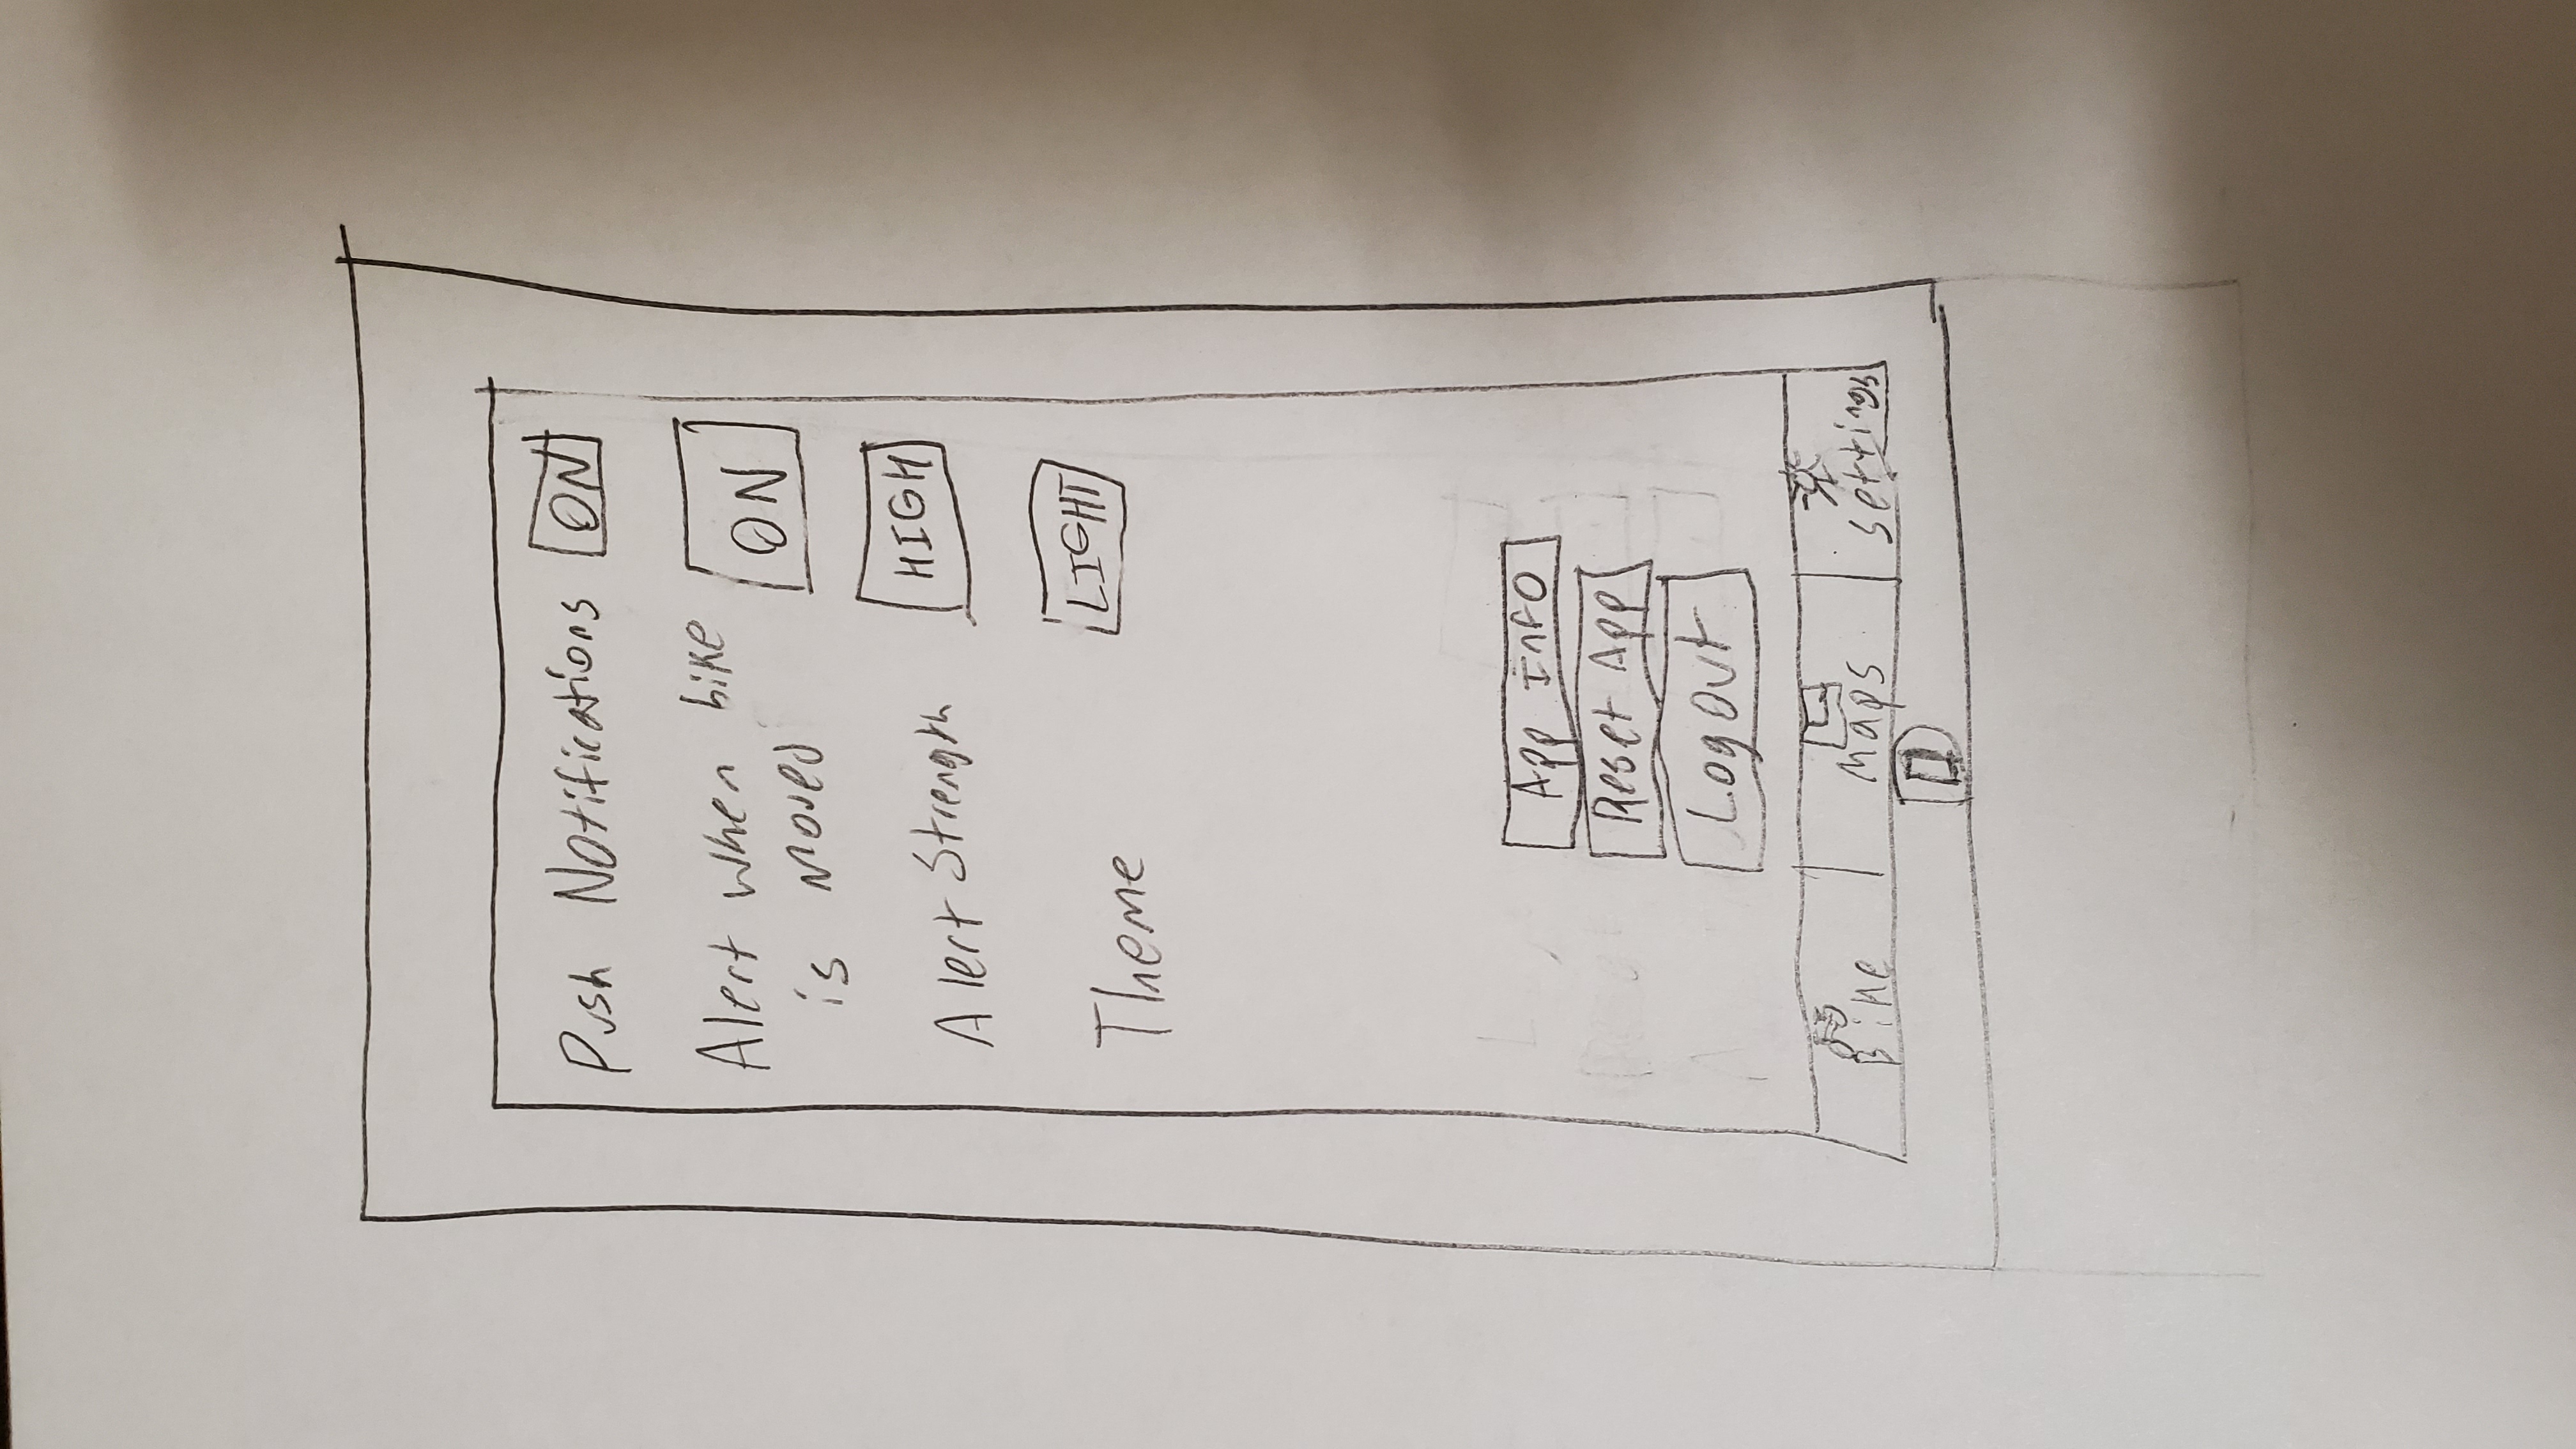 Push Notifications ON
Alert when bike ON
is moved
Alert Strength HIGH
Theme LIGHT
App Info
Reset App
Log Out
Bike Maps Settings